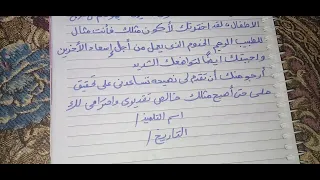 الأطفال، لقد اخترتك لأكون مثلك. فأنت مثال
للطبيب الرحيم الخدوم الذى يعمل من أجل إسعاد الآخرين
وأحببتك أيضاً لتواضعك الشديد
أرجو منك أن تقدم لى نصيحة تساعدنى على تحقيق
حتى أصبح مثلك خالص تقديرى واحترامى لك
اسم التلميذ /
التاريخ /